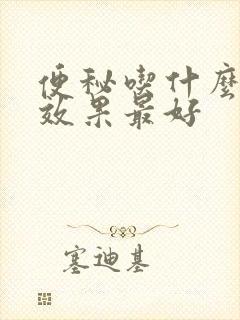 便秘喫什麼
效果最好
塞迪基